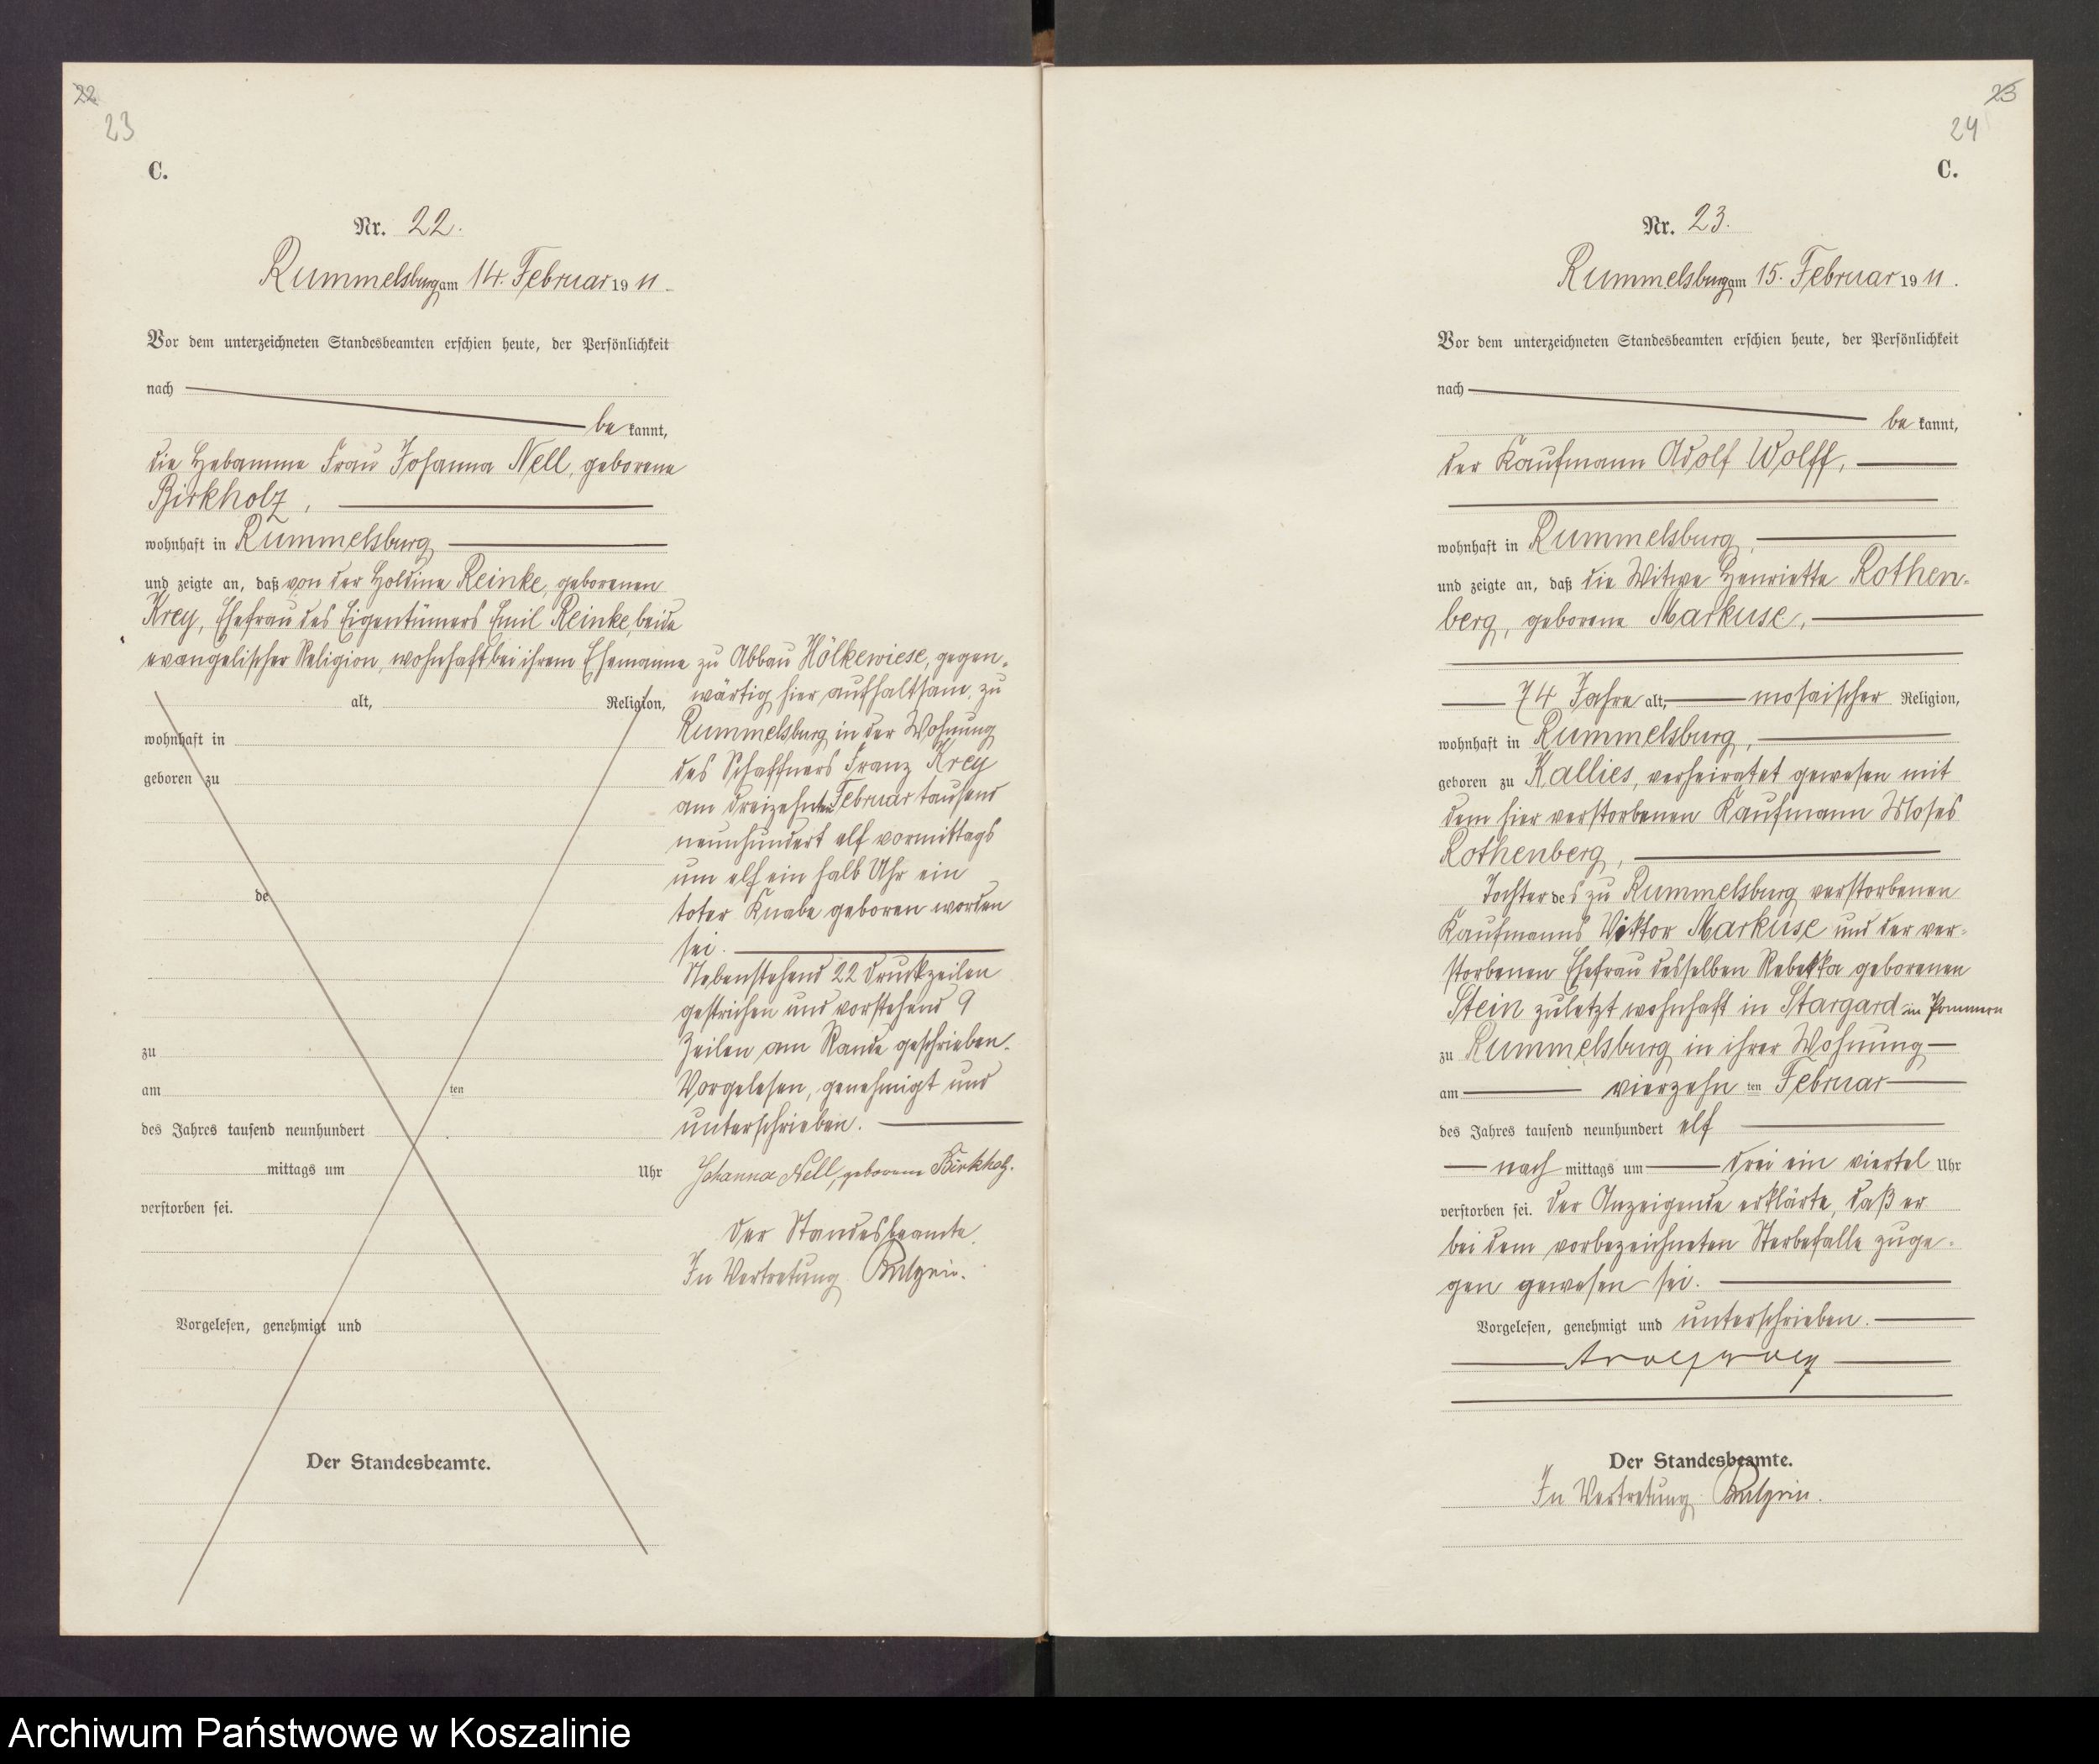 22
23
C.
Nr. 22.
Rummelsburg am 14. Februar 1911.
Vor dem unterzeichneten Standesbeamten erschien heute, der Persönlichkeit
nach
be kannt,
die Hebamme Frau Johanna Nell, geborene
Birkholz,
wohnhaft in Rummelsburg
und zeigte an, daß von der Holdine Reinke, geborenen
Krey, Ehefrau des Eigentümers Emil Reinke, beide
evangelischer Religion, wohnhaft bei ihrem Ehemanne zu Abbau Hölkewiese, gegen-
wärtig hier aufhaltsam, zu
Rummelsburg in der Wohnung
des Schaffners Franz Krey
am dreizehnten Februar tausend
neunhundert elf vormittags
um elf ein halb Uhr ein
toter Knabe geboren worden
sei.
Nebenstehend 22 Druckzeilen
gestrichen und vorstehend 9
Zeilen am Rande geschrieben.
Vorgelesen, genehmigt und
unterschrieben.
Johanna Nell, geborene Birkholz.
Der Standesbeamte.
In Vertretung
alt, Religion,
wohnhaft in
geboren zu
de
zu
am ten
des Jahres tausend neunhundert
mittags um Uhr
verstorben sei.
Vorgelesen, genehmigt und
Der Standesbeamte.
23
24
C.
Nr. 23.
Rummelsburg am 15. Februar 1911.
Vor dem unterzeichneten Standesbeamten erschien heute, der Persönlichkeit
nach
be kannt,
der Kaufmann Adolf Wolff,
wohnhaft in Rummelsburg,
und zeigte an, daß die Witwe Henriette Rothen-
berg, geborene Markuse,
74 Jahre alt, mosaischer Religion,
wohnhaft in Rummelsburg,
geboren zu Kallies, verheiratet gewesen mit
dem hier verstorbenen Kaufmann Moses
Rothenberg,
Tochter des zu Rummelsburg verstorbenen
Kaufmanns Viktor Markuse und der ver-
storbenen Ehefrau desselben Rebekka geborenen
Stein zuletzt wohnhaft in Stargard in Pommern
zu Rummelsburg in ihrer Wohnung
am vierzehn ten Februar
des Jahres tausend neunhundert elf
nach mittags um drei ein viertel Uhr
verstorben sei. Der Anzeigende erklärte, daß er
bei dem vorbezeichneten Sterbefalle zuge-
gen gewesen sei.
Vorgelesen, genehmigt und unterschrieben.
Adolf Wolff
Der Standesbeamte.
In Vertretung
Archiwum Państwowe w Koszalinie